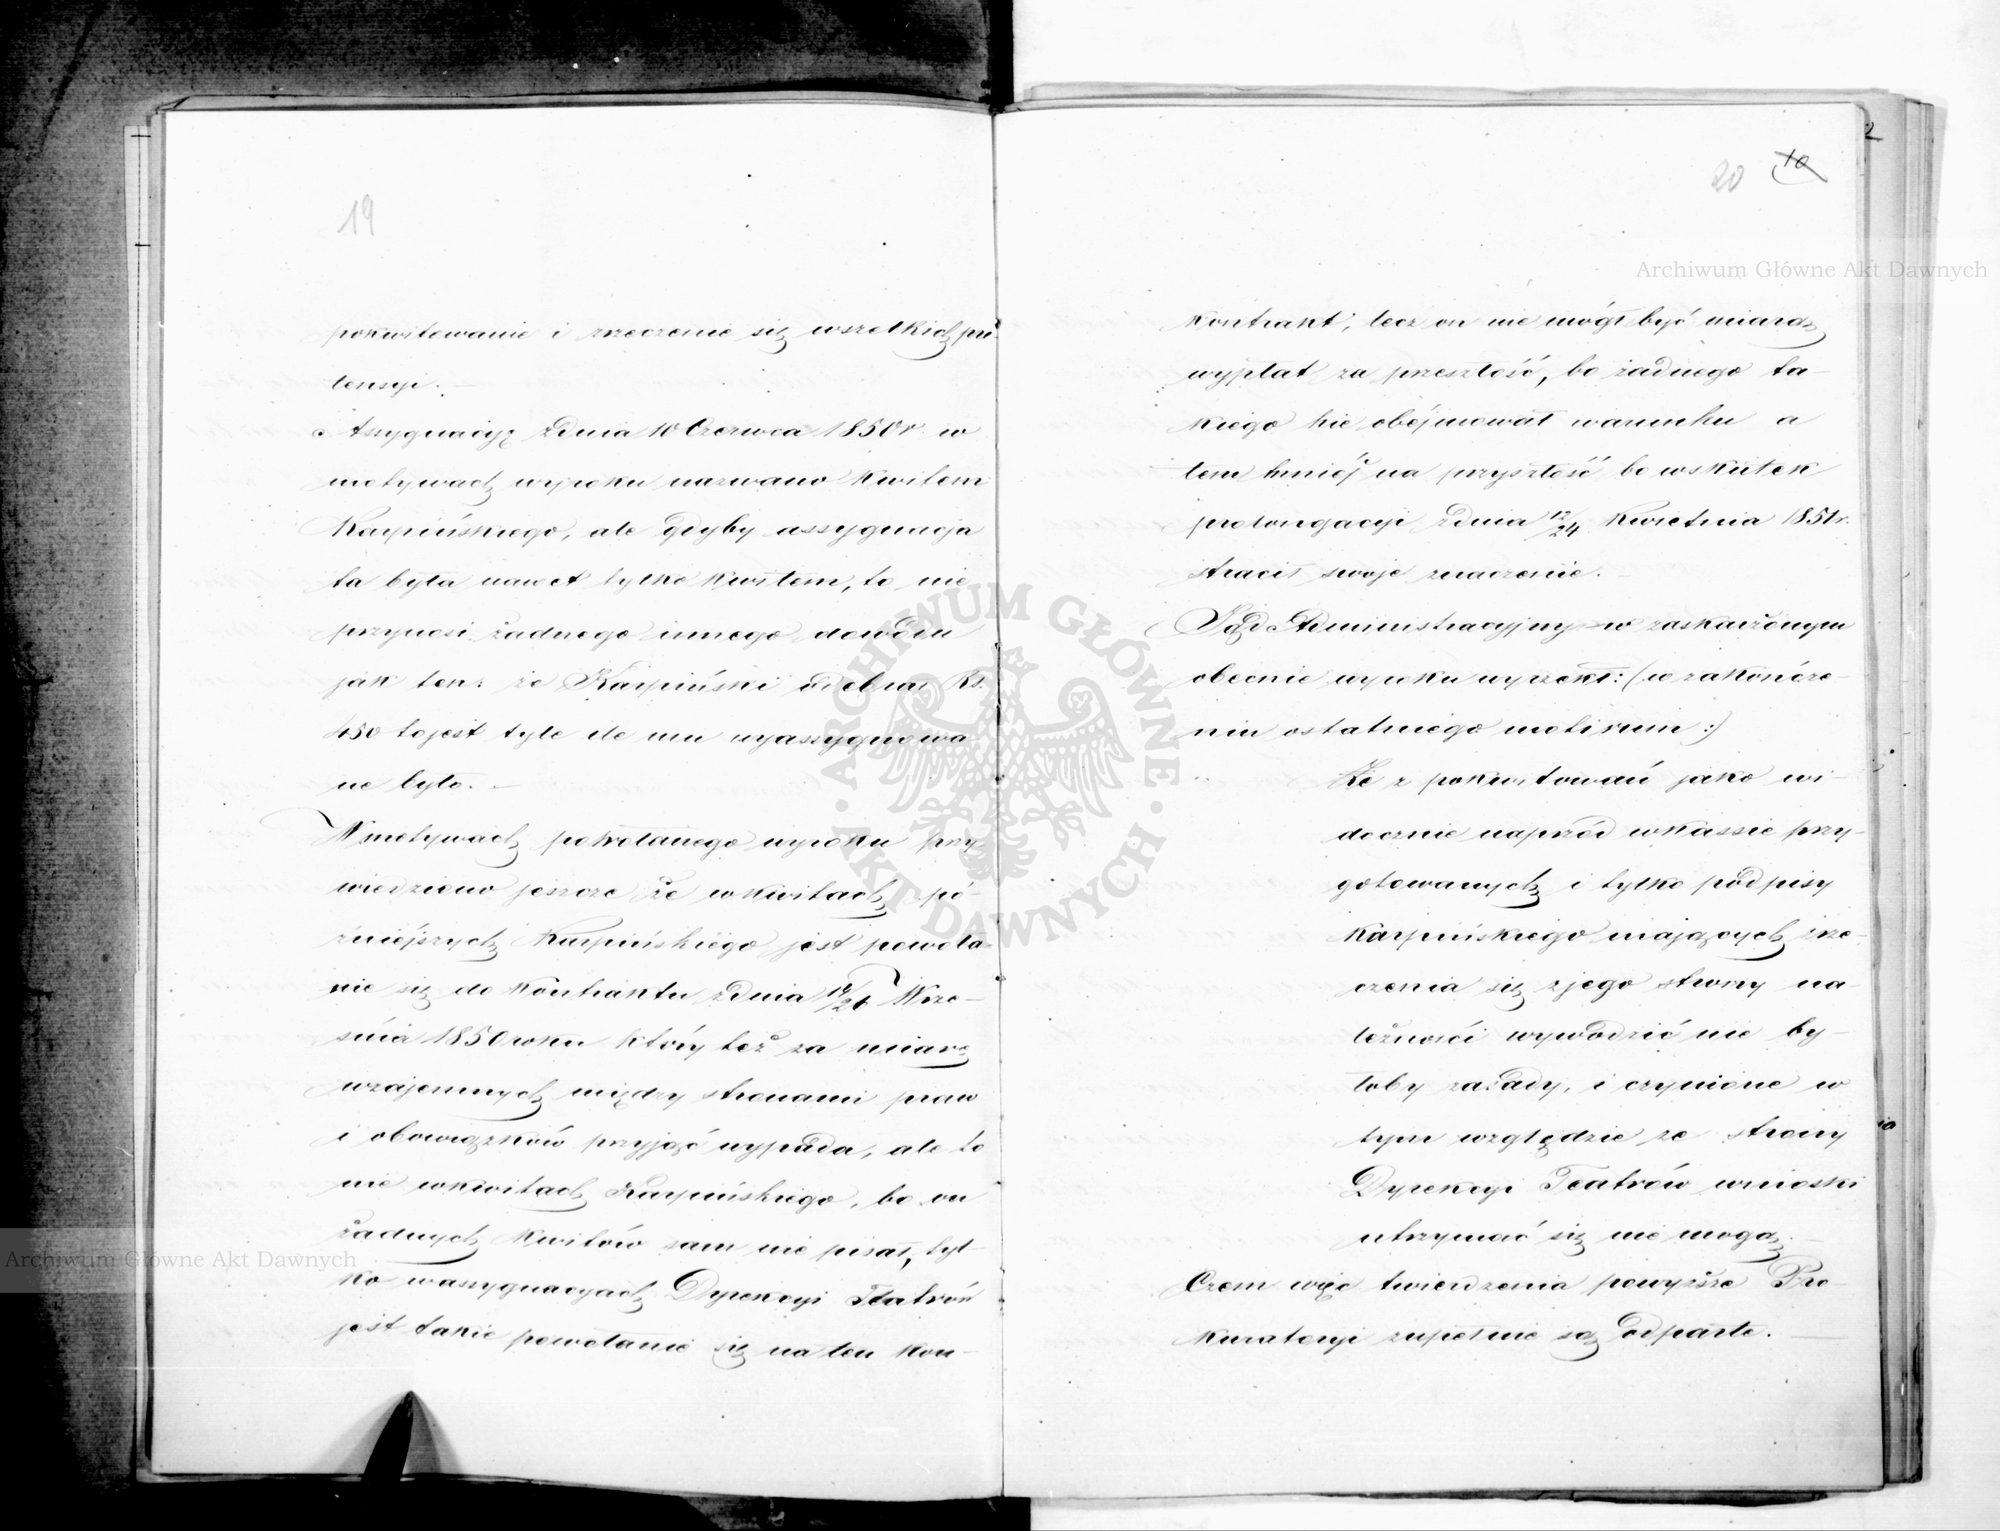 19
pokwitowanie i zrzeczenie się wszelkich pre-
tensyi. —
Assygnacyę z dnia 10 Czerwca 1850 r. w
motywach wyroku nazwano kwitem
Karpińskiego, ale gdyby assygnacja
ta była nawet tylko kwitem, to nie
przynosi żadnego innego dowodu
jak ten: że Karpiński odebrał Rs.
450 to jest tyle ile mu wyassygnowa
ne było. —
W motywach powołanego wyroku przy
wiedziono jeszcze że w kwitach pó-
źniejszych Karpińskiego jest powoła-
nie się do Kontraktu z dnia 14/26 Wrze-
śnia 1850 roku który też za miarę
wzajemnych między stronami praw
i obowiązków przyjąć wypada, ale to
nie w kwitach Karpińskiego, bo on
żadnych kwitów sam nie pisał, tyl-
ko w assygnacyach Dyrekcyi Teatrów
jest takie powołanie się na ten kon-
20 10
Kontrakt, lecz on nie mógł być miarą
wypłat za przeszłość, bo żadnego ta-
kiego nie obejmował warunku a
tem mniéj na przyszłość bo w skutek
prolongacyi z dnia 12/24 Kwietnia 1851 r.
stracił swoje znaczenie. —
Sąd Administracyjny w zaskarżonym
obecnie wyroku wyrzekł: (w zakończe-
niu ostatniego motivum :)
Że z pokwitowań jako wi-
docznie naprzód w kassie przy-
gotowanych i tylko podpisy
Karpińskiego mających zrze-
czenia się z jego strony na-
leżności wywodzić nie by-
łoby zasady, i czynione w
tym względzie ze strony
Dyrekcyi Teatrów wnioski
utrzymać się nie mogą. —
Czem więc twierdzenia powyższe Pro-
kuratoryi zupełnie są odparte. —
Archiwum Główne Akt Dawnych
Archiwum Główne Akt Dawnych
ARCHIWUM GŁÓWNE · AKT DAWNYCH ·